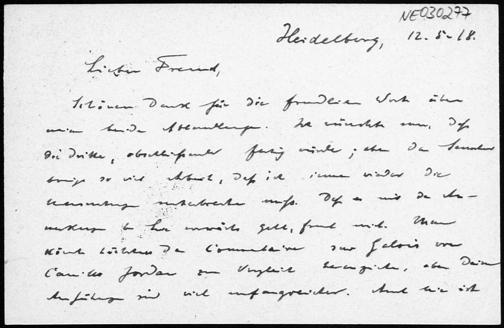 NE030277
Heidelberg, 12.5.18.
Lieber Freund,
Schönen Dank für die freundlichen Worte über
meine beiden Abhandlungen. Ich wünschte nur, daß
die dritte, abschließende fertig würde; aber das Semester
bringt so viel Arbeit, daß ich immer wieder die
unterbrechen muß. Daß es mit den An-
merkungen vorwärts geht, freut mich. Man
könnte höchstens den Commentaire sur Galois von
Camille Jordan zum Vergleich heranziehen, aber Deine
Anführungen sind viel umfangreicher. Auch wie ist